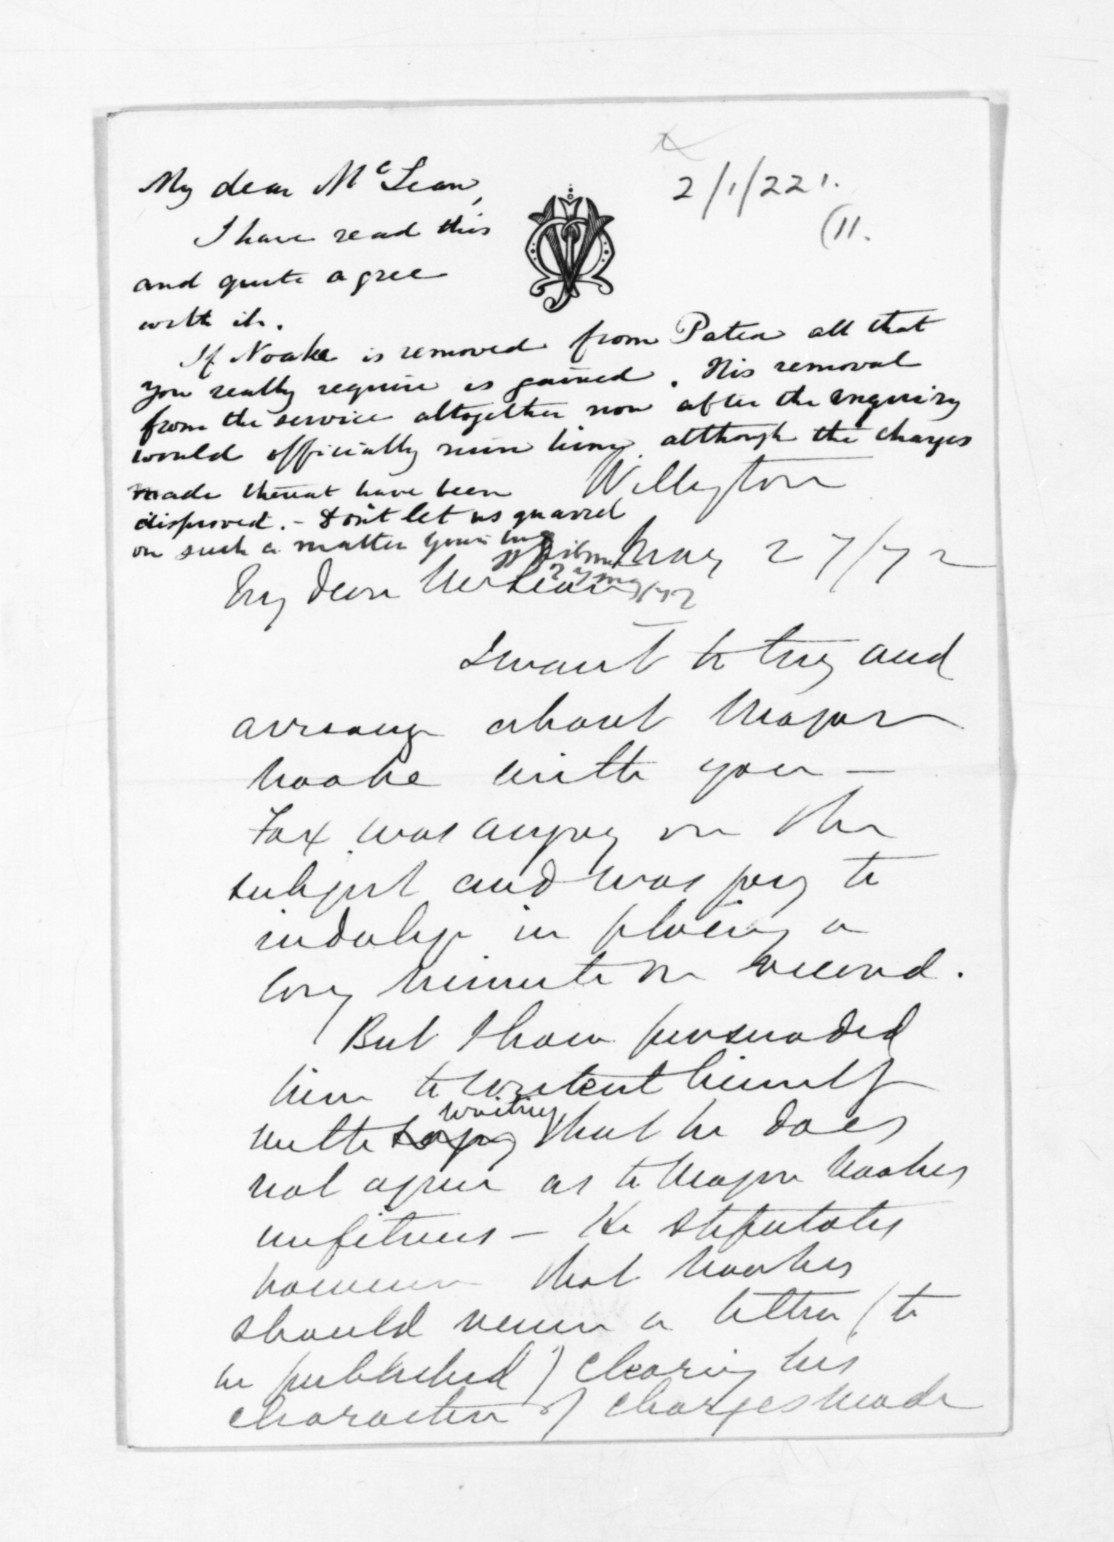 2/1/221.
(11.
My dear McLean,
I have read this
and quite agree
with it.
If Noake is removed from Patea all that
you really require is gained. His removal
from the service altogether now after the enquiry
would officially ruin him, although the charges
made thereat have been
disproved. - Don't let us quarrel
on such a matter Yours
27 May/72
Wellington
May 27/72
My dear McLean
I want to try and
arrange about Major
Noake with you -
Fox was angry on the
subject and was going to
indulge in placing a
long minute on record.
But I have persuaded
him to content himself
with saying writing that he does
not agree as to Major Noakes
unfitness - He stipulates
however that Noakes
should receive a letter (to
be published) clearing his
character of charges made